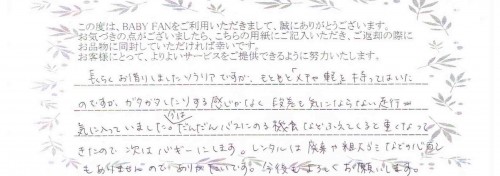 この度は、BABY FANをご利用いただきまして、誠にありがとうございます。
お気づきの点がございましたら、こちらの用紙にご記入いただき、ご返却の際に
お品物に同封していただければ幸いです。
お客様にとって、よりよいサービスをご提供できるように努力いたします。
長らくお借りしましたソラリアですが、もともと「メチャ軽」を持ってはいた
のですが、ガタガタしたりする感じがなく段差も気にならない走行が
気に入っていました。今は だんだんバスにのる機会などふえてくると重くなって
きたので 次はバギーにします。レンタルは 廃棄や粗大ゴミなどの心配
もありませんので ありがたいです。今後もよろしくお願いします。